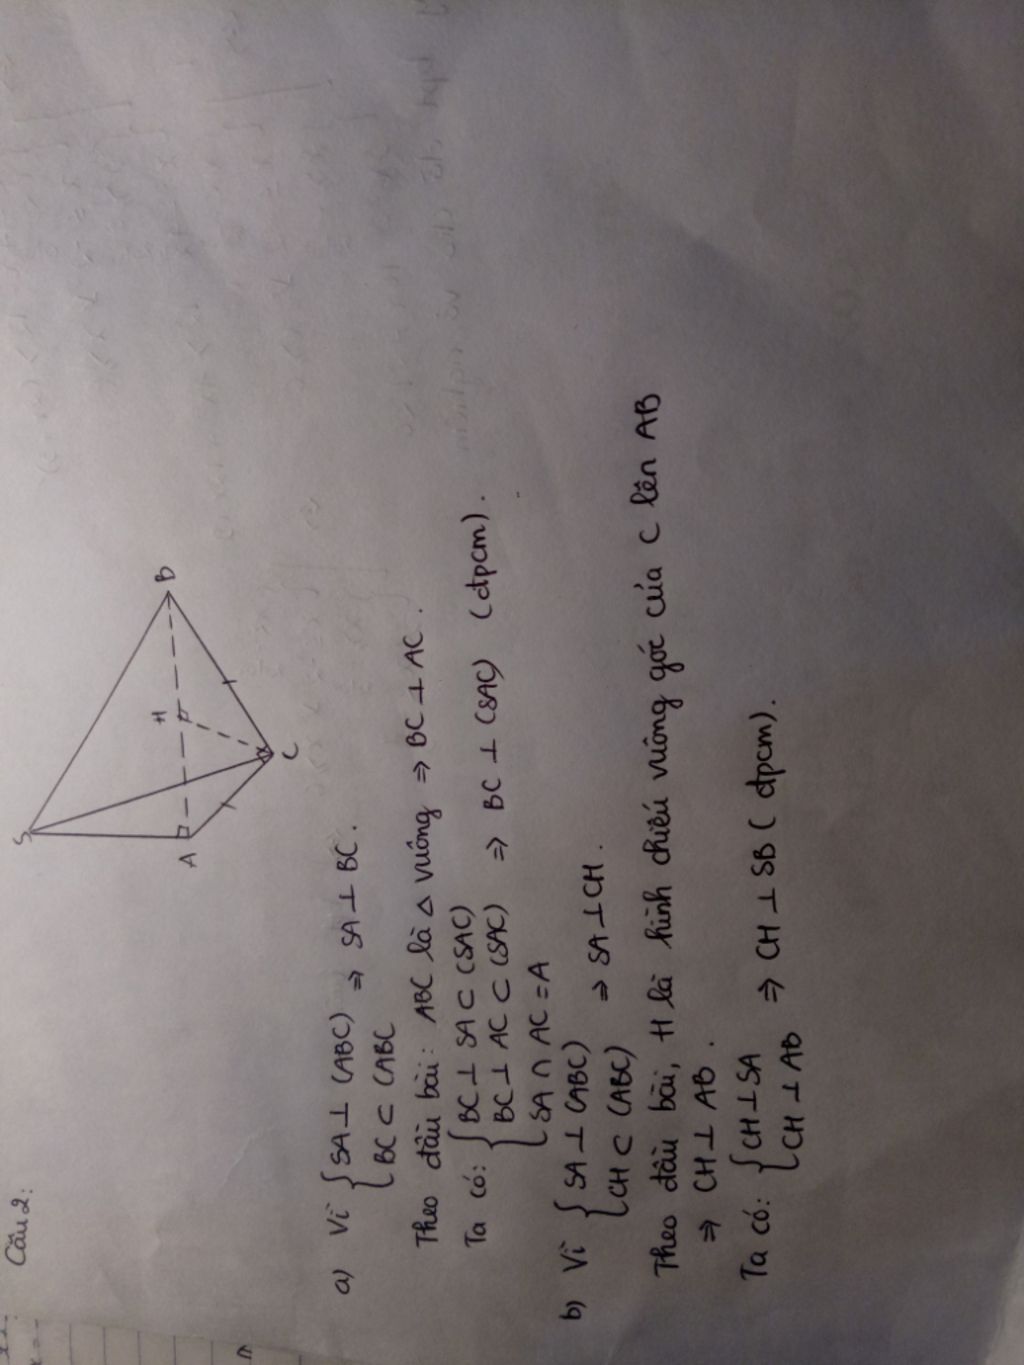 Câu 2:
S
A
H
B
C
a) Vì { SA ⊥ (ABC) ⇒ SA ⊥ BC.
BC ⊂ (ABC
Theo đầu bài: ABC là Δ vuông ⇒ BC ⊥ AC.
Ta có: { BC ⊥ SA ⊂ (SAC)
BC ⊥ AC ⊂ (SAC) ⇒ BC ⊥ (SAC) (đpcm).
SA ∩ AC = A
b) Vì { SA ⊥ (ABC)
CH ⊂ (ABC) ⇒ SA ⊥ CH.
Theo đầu bài, H là hình chiếu vuông góc của C lên AB
⇒ CH ⊥ AB.
Ta có: { CH ⊥ SA
CH ⊥ AB ⇒ CH ⊥ SB (đpcm).